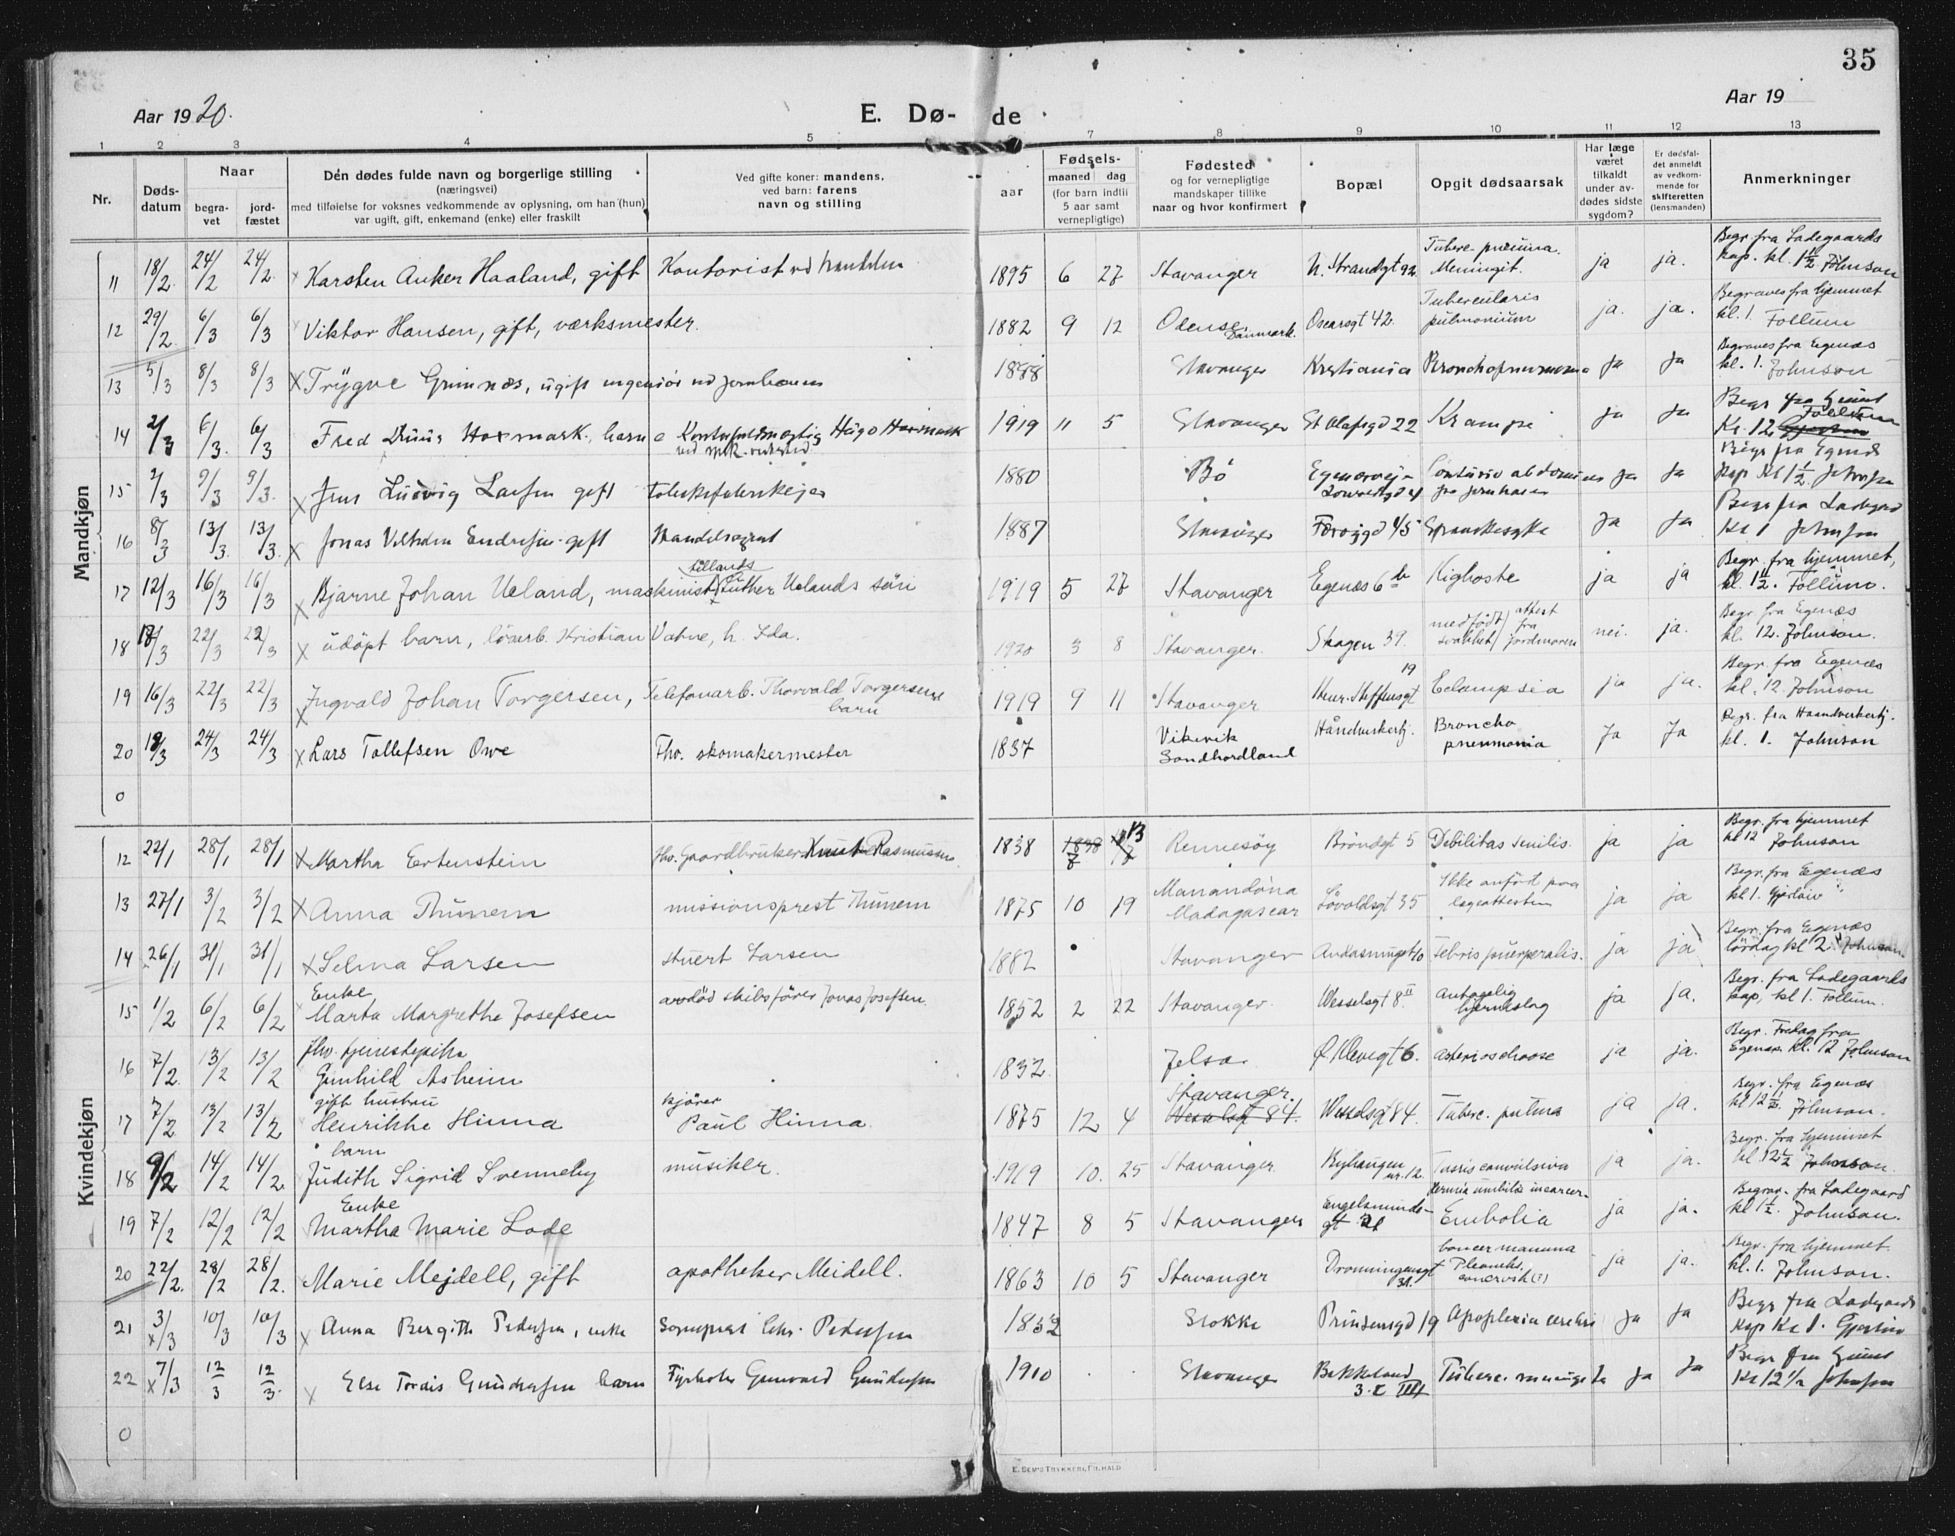 35
Aar 1920.
E. Dø- de
Aar 19
1 2 3 4 5 7 8 9 10 11 12 13
Nr.
Døds-
datum
Naar
begra-
vet
jord-
fæstet
Den dødes fulde navn og borgerlige stilling
(næringsvei)
med tilføielse for voksnes vedkommende av oplysning, om han (hun)
var ugift, gift, enkemand (enke) eller fraskilt
Ved gifte koner: mandens,
ved barn: farens
navn og stilling
aar
Fødsels-
maaned dag
(for barn indtil
5 aar samt
vernepligtige)
Fødested
og for vernepligtige
mandskaper tillike
naar og hvor konfirmert
Bopæl
Opgit dødsaarsak
Har læge
været
tilkaldt
under av-
dødes sidste
sygdom?
Er dødsfal-
det anmeldt
av vedkom-
mende for
skifteretten
(lensmanden)
Anmerkninger
Mandkjøn
11 18/2 24/2 24/2 Karsten Anker Haaland, gift Kontorist 1895 6 27 Stavanger N. Strandgt 92. Meningit. ja ja. Begr. fra Ladegaards kap. kl. 1 1/2 Johnson
12 29/2 6/3 6/3 Viktor Hansen, gift, værksmester. 1882 9 12 Odense Danmark. Oscarsgt 42. Tubercularis pulmonium ja. ja. Begraves fra hjemmet kl. 1 Follum
13 5/3 8/3 8/3 x Trygve Grimnæs, ugift ingeniør ved jernbanen 1888 Stavanger Kristiania ja ja Begraves fra Egenæs kl. 1. Johnson
14 2/3 6/3. 6/3 Fred barn 1919 11 5 Stavanger St Olafsgd 22 Krampe ja ja Begr fra Follum Kl. 12
15 2/3 9/3 9/3. x Jens Ludvig Larsen gift 1880 Bö ja ja Begr fra Egenæs kap Kl 1 1/2. Johnson
16 8/3 13/3. 13/3. x Jonas Endresen gift Handelsagent 1887 Stavanger Færøygd 45 Spanskesyke ja ja Begr fra Ladegrd Kl 1 Johnson
17 12/3 16/3 16/3 x Bjarne Johan Ueland, maskinist Luther Uelands sön 1919 5 27 Stavanger Egenæs 6 b Kighoste ja ja Begr. fra hjemmet, kl. 12. Follum.
18 18/3 22/3 22/3 x udöpt barn, Kristian Vatne, h. Ida. 1920 3 8 Stavanger. Skagen 39. medfödt svakhet / attest fra jordmoren nei. ja. Begr fra Egenæs kl. 12. Johnson.
19 16/3 22/3 22/3 x Ingvald Johan Torgersen, Telefonarb. Thorvald Torgersens barn 1919 9 11 Stavanger Henr. Steffensgt 19 Eclampsia ja ja. Begr. fra Egenæs kl. 12 Johnson
20 18/3 24/3 24/3 x Lars Tollefsen Owe Fhv. skomakermester 1837 Vikevik Sondhordland Håndverkerhj. Broncho pneumonia Ja Ja Begr. fra Haandverkerhj. kl. 1. Johnson
0
Kvindekjøn
12 22/1 28/1 28/1 x Martha Ertenstein fhv. Gaardbruker Knut Rasmussen 1838 Rennesöy Bröndgt 5 Debilitas senilis. ja ja Begr. fra hjemmet kl 12 Johnson
13 27/1 3/2 3/2 x Anna Thunem missionsprest Thunem 1875 10 19 Manandona Madagascar Lövoldsgt 35 Ikke anförd paa lægeattesten ja ja Begr. fra Egenæs kl 1.
14 26/1 31/1 31/1 x Selma Larsen stuert Larsen 1882 Stavanger Febris puerperalis. ja ja Begr. fra Egenæs lördag kl 2. Johnson
15 1/2 6/2 6/2 Enke Marta Margrethe Josefsen avdöd skibsförer Jonas Josefsen. 1852 2 22 Stavanger. Wesselsgt 8 II antagelig hjerneslag ja ja. Begr. fra Ladegaards kap, kl 1. Follum.
16 7/2. 13/2 13/2 fhv. tjenestepike Gunhild Asheim 1832. Jelsa Ø Klevegt 6. ja ja. Begr. Fredag fra Egenæs. kl. 12 Johnson
17 7/2 13/2 13/2 gift hustru Henrikke Hinna kjörer Paul Hinna. 1875 12 4 Stavanger. Wesselsgt 84. ja ja. Begr. fra Egenæs kl 12 Johnson.
18 9/2 14/2 14/2 barn Judith Sigrid Svenneby musiker. 1919 10. 25 Stavanger Byhaugen nr. 12. Tussis convulsiva ja ja. Begr. fra hjemmet kl. 12 1/2 Johnson.
19 7/2 12/2 12/2 Enke Martha Marie Lode 1847 8 5 Stavanger Engelsminde- gt 21 Hernia umbilic incarcer. Embolia ja ja. Begrav. fra Ladegaard kl 1 1/2. Johnson.
20 22/2. 28/2 28/2. Marie Mejdell, gift apotheker Meidell. 1863 10 5 Stavanger Dronningensgt cancer mamma ja ja. Begr. fra hjemmet kl. 1. Johnson.
21 3/3 10/3 10/3 x Anna Bergitte Pedersen, enke Chr. Pedersen 1832 Stokke Prinsensgd 19 Apoplexia cerebri ja ja Begr fra Ladegaards kap Kl 1.
22 x 7/3 12/3 12/3. x Else Tordis Gundersen barn Fyrböter Gunvald Gundersen 1910 Stavanger Bakkeland Tuberc. meningit ja ja Begr fra Kl 12 1/2 Johnson
0
E. SEM'S TRYKKERI, FR.HALD